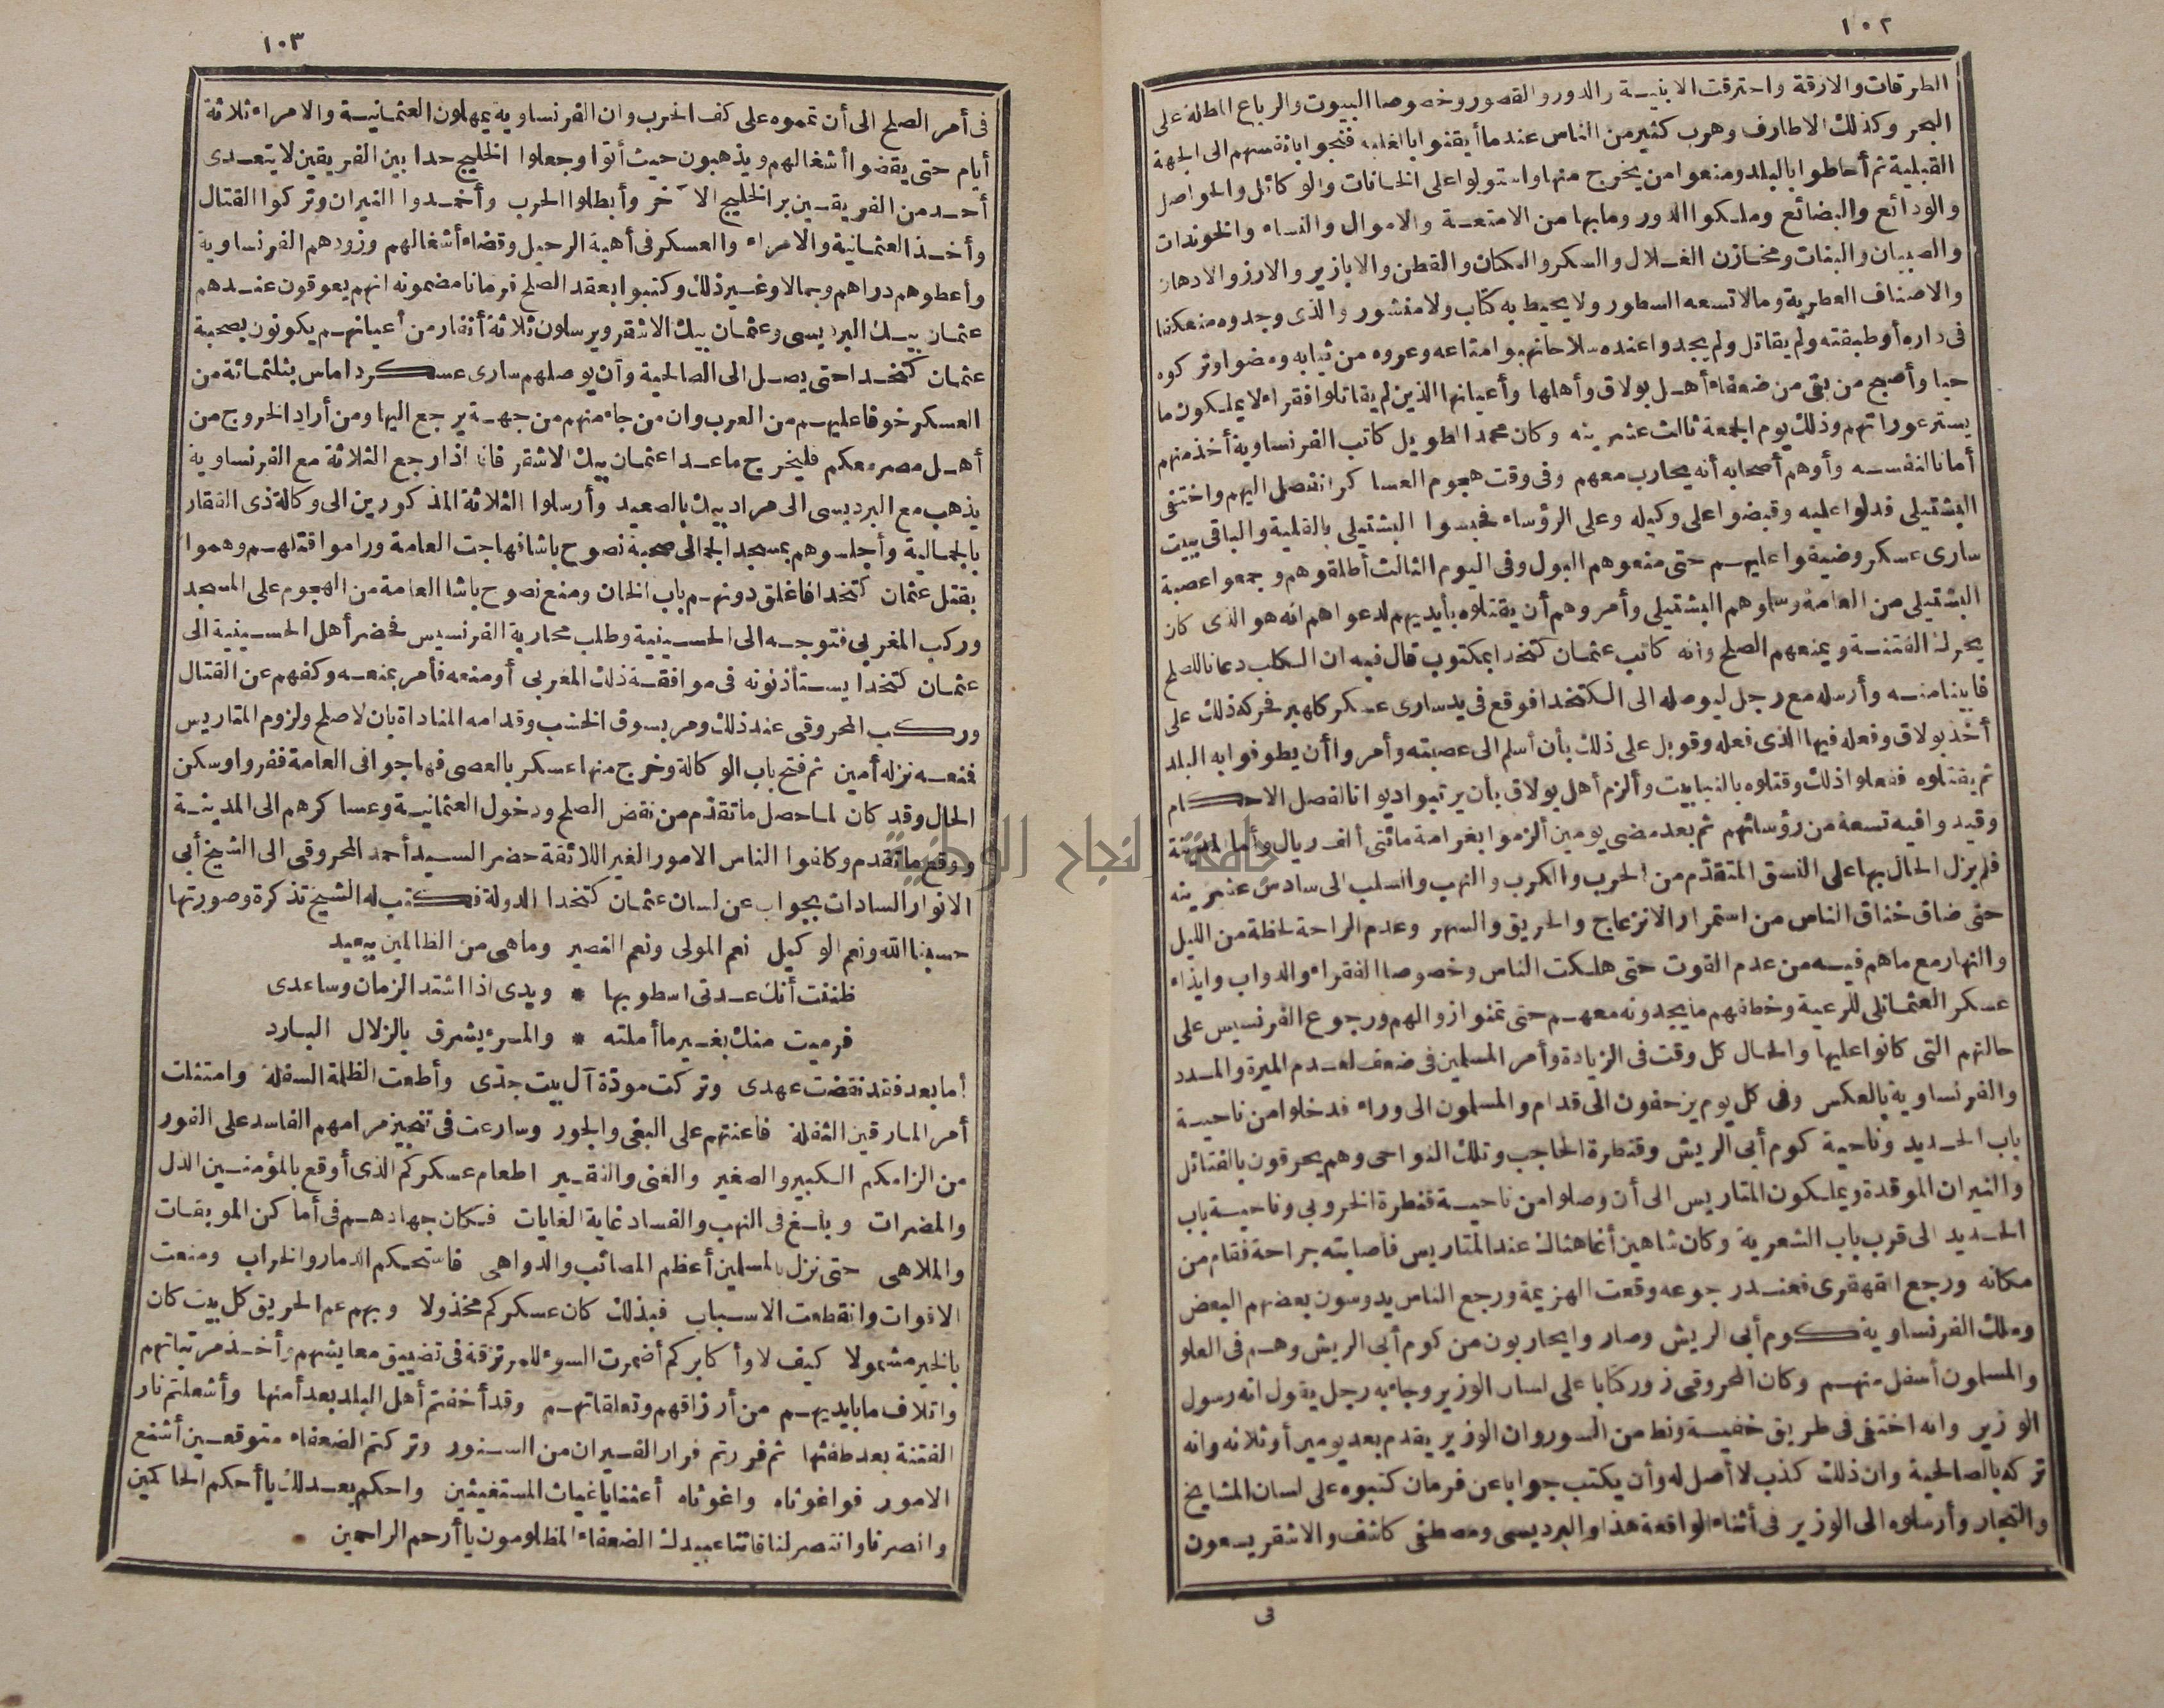 ١٠٢
الطرقات والازقة واحترقت الابنيـة والدور والقصور وخصوصا البيوت والرباع المطلة على
البحر وكذلك الاطارف وهرب كثير من الناس عندما أيقنوا بالغلبه فنجوا بانفسهم الى الجهة
القبلية ثم أحاطوا بالبلد ومنعوا من يخرج منها واستولوا على الخانات والوكائل والحواصل
والودائع والبضائع وملكوا الدور وما بها من الامتعـة والاموال والنساء والخوندات
والصبيان والبنات ومخازن الغلال والسكر والكتان والقطن والابازير والارز والادهان
والاصناف العطرية وما لا تسعه السطور ولا يحيط به كتاب ولا منشور والذى وجدوه منعكفا
فى داره أو طبقته ولم يقاتل ولم يجدوا عنده سلاحا نهبوا متاعه وعروه من ثيابه ومضوا وتركوه
حيا وأصبح من بقى من ضعفاء أهل بولاق وأهلها وأعيانها الذين لم يقاتلوا فقراء لا يملكون ما
يستر عوراتهم وذلك يوم الجمعة ثالث عشرينه وكان محمد الطويل كاتب الفرنساوية أخذ منهم
أمانا لنفسـه وأوهم أصحابه أنه يحارب معهم وفى وقت هجوم العساكر انفصل اليهم واختفى
البشتيلى فدلوا عليه وقبضوا على وكيله وعلى الرؤساء فحبسوا البشتيلى بالقلعة والباقى ببيت
سارى عسكر وضيقوا عليهـم حتى منعوهم البول وفى اليوم الثالث أطلقوهم وجمعوا عصبة
البشتيلى من العامة وسلموهم البشتيلى وأمروهم أن يقتلوه بأيديهم لدعواهم انه هو الذى كان
يحرك الفتنـة ويمنعهم الصلح وانه كاتب عثمان كتخدا بمكتوب قال فيه ان الكلب دعانا للصلح
فابينا منـه وأرسله مع رجل ليوصله الى الكتخدا فوقع فى يد سارى عسكر كلهبر فحركه ذلك على
أخذ بولاق وفعله فيها الذى فعله وقوبل على ذلك بأن أسلم الى عصبته وأمروا أن يطوفوا به البلد
ثم يقتلوه ففعلوا ذلك وقتلوه بالنبابيت وألزم أهل بولاق بأن يرتبوا ديوانا لفصل الاحكام
وقيدوا فيه تسعة من رؤسائهم ثم بعد مضى يومين ألزموا بغرامة مائتى ألف ريال وأما المدينة
فلم يزل الحال بها على النسق المتقدّم من الحرب والكرب والنهب والسلب الى سادس عشرينه
حتى ضاق خناق الناس من استمرار الانزعاج والحريق والسهر وعدم الراحة لحظة من الليل
والنهار مع ماهم فيـه من عدم القوت حتى هلكت الناس وخصوصا الفقراء والدواب وايذاء
عسكر العثمانلى للرعية وخطفهم ما يجدونه معهـم حتى تمنوا زوالهم ورجوع الفرنسيس على
حالتهم التى كانوا عليها والحال كل وقت فى الزيادة وأمر المسلمين فى ضعف لعدم الميرة والمدد
والفرنساوية بالعكس وفى كل يوم يزحفون الى قدام والمسلمون الى وراء فدخلوا من ناحيـة
باب الحديد وناحية كوم أبى الريش وقنطرة الحاجب وتلك النواحى وهم يحرقون بالفتائل
والنيران الموقدة ويملكون المتاريس الى أن وصلوا من ناحيـة قنطرة الخروبى وناحيـة باب
الحديد الى قرب باب الشعرية وكان شاهين أغا هناك عند المتاريس فأصابته جراحة فقام من
مكانه ورجع القهقرى فعند رجوعه وقعت الهزيمة ورجع الناس يدوسون بعضهم البعض
وملك الفرنساوية كوم أبى الريش وصاروا يحاربون من كوم أبى الريش وهم فى العلو
والمسلمون أسفل منهـم وكان المحروقى زوّر كتابا على لسان الوزير وجاء به رجل يقول انه رسول
الوزير وانه اختفى فى طريق خفيـة ونط من السور وان الوزير يقدم بعد يومين أو ثلاثة وانه
تركه بالصالحية وان ذلك كذب لا أصل له وأن يكتب جوابا عن فرمان كتبوه على لسان المشايخ
والتجار وأرسلوه الى الوزير فى أثناء الواقعة هذا والبرديسى ومصطفى كاشف والاشقر يسعون
فى
١٠٣
فى أمر الصلح الى أن تمموه على كف الحرب وان الفرنساوية يمهلون العثمانيـة والامراء ثلاثة
أيام حتى يقضوا أشغالهم ويذهبون حيث أتوا وجعلوا الخليج حدا بين الفريقين لا يتعـدى
أحـد من الفريقـين بر الخليج الآخر وأبطلوا الحرب وأخـدوا النيران وتركوا القتال
وأخـذ العثمانية والامراء والعسكر فى أهبة الرحيل وقضاء أشغالهم وزودهم الفرنساوية
وأعطوهم دراهم وجمالا وغـير ذلك وكتبوا بعقد الصلح فرمانا مضمونه انهم يعوقون عنـدهم
عثمان بيـك البرديسى وعثمان بيك الاشقر ويرسلون ثلاثة أنفار من أعيانهـم يكونون بصحبة
عثمان كتخـدا حتى يصـل الى الصالحية وأن يوصلهم سارى عسكر داماس بثلثمائة من
العسكر خوفا عليهـم من العرب وان من جاء منهم من جهـة يرجع اليها ومن أراد الخروج من
أهـل مصر معكم فليخرج ماعـدا عثمان بيك الاشقر فانه اذا رجع الثلاثة مع الفرنساوية
يذهب مع البرديسى الى مراد بيك بالصعيد وأرسلوا الثلاثة المذكورين الى وكالة ذى الفقار
بالجمالية وأجلسوهم بمسجد الجمالى صحبة نصوح باشا فهاجت العامة وراموا قتلهـم وهموا
بقتل عثمان كتخدا فاغلق دونهـم باب الخان ومنع نصوح باشا العامة من الهجوم على المسجد
وركب المغربى فتوجـه الى الحسـينية وطلب محاربة الفرنسيس فحضر أهل الحسـينية الى
عثمان كتخدا يسـتأذنونه فى موافقـة ذلك المغربى أو منعه فأمر بمنعـه وكفهم عن القتال
وركب المحروقى عند ذلك ومر بسوق الخشب وقدامه المناداة بان لا صلح ولزوم المتاريس
فمنعـه نزله أمين ثم فتح باب الوكالة وخرج منها عسكر بالعصى فهاجوا فى العامة ففروا وسكن
الحال وقد كان لما حصل ما تقدّم من نقض الصلح ودخول العثمانيـة وعساكرهم الى المدينـة
ووقع ما تقدم وكلفوا الناس الامور الغير اللائقة حضر السـيد أحمد المحروقى الى الشيخ أبى
الانوار السادات بجواب عن لسان عثمان كتخدا الدولة فكتب له الشيخ تذكرة وصورتها
حسبنا الله ونعم الوكيل نعم المولى ونعم النصير وما هى من الظالمين ببعيد
ظننت أنك عـدتى اسطو بها * ويدى اذا اشتد الزمان وساعدى
فرميت منك بغـير ما أملته * والمـرء يشرق بالزلال البارد
أما بعد فقد نقضت عهدى وتركت مودّة آل بيت جدّى وأطعت الظلمة السفلة وامتثلت
أمر المارقين الثقلة فأعنتهم على البغى والجور وسارعت فى تنجيز مرامهم الفاسد على الفور
من الزامكم الكبير والصغير والغنى والفقـير اطعام عسكركم الذى أوقع بالمؤمنـين الذل
والمضرات وبلـغ فى النهب والفساد غاية الغايات فكان جهادهـم فى أماكن الموبقات
والملاهى حتى نزل بالمسلمين أعظم المصائب والدواهى فاستحكم الدمار والخراب ومنعت
الاقوات وانقطعت الاسـباب فبذلك كان عسكركم مخذولا وبهم عم الحريق كل بيت كان
بالخير مشمولا كيف لا وأكابركم أضمرت السوء للمرتزقة فى تضييق معايشهم وأخـذ مرتباتهم
واتلاف ما بايديهـم من أرزاقهم وتعلقاتهـم وقد أخفتم أهل البلد بعد أمنها وأشعلتم نار
الفتنة بعد طفئها ثم فررتم فرار الفـيران من السـنور وتركتم الضعفاء متوقعـين أشنع
الامور فواغوثاه واغوثاه أغثنا يا غياث المستغيثين واحكم بعـدلك يا أحكم الحاكمين
وانصرنا وانتصر لنا فاننا عبيدك الضعفاء المظلومون يا أرحم الراحمين
جامعة النجاح الوطنية